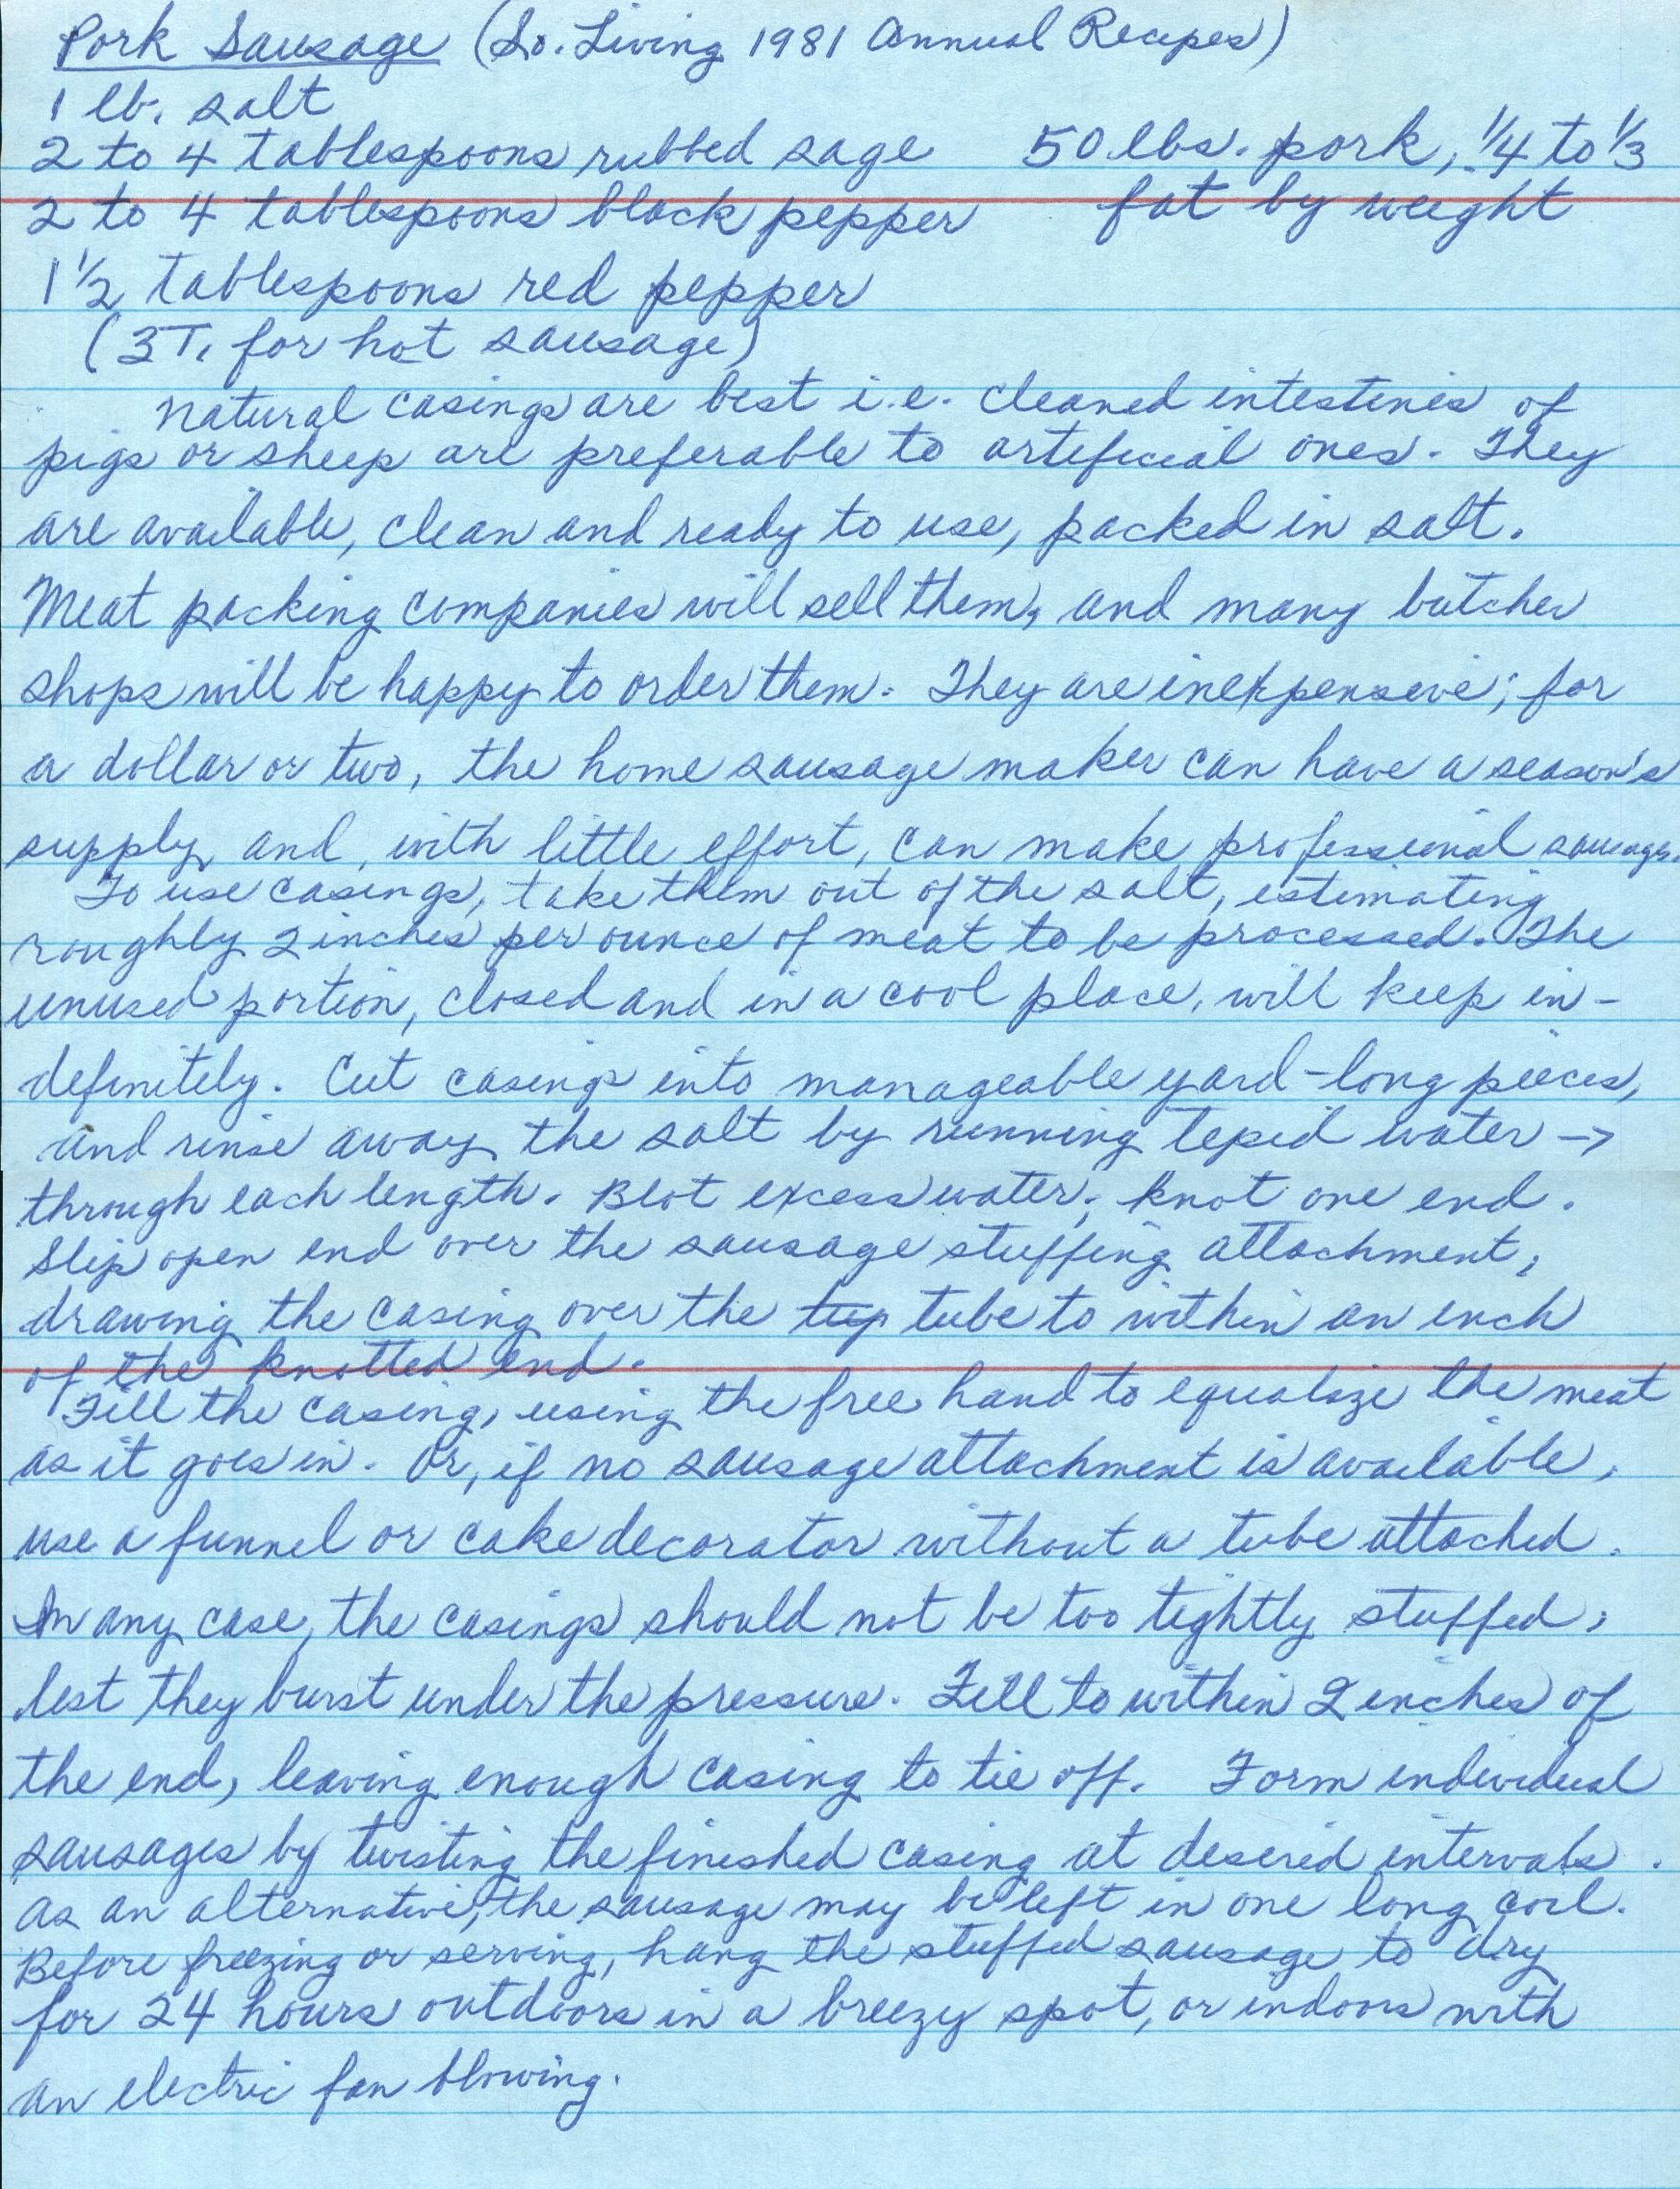 Pork Sausage (So. Living 1981 Annual Recipes)
1 lb. salt
2 to 4 tablespoons rubbed sage   50 lbs. pork, 1/4 to 1/3
2 to 4 tablespoons black pepper   fat by weight
1 1/2 tablespoons red pepper
(3T. for hot sausage)
Natural casings are best i.e. cleaned intestines of
pigs or sheep are preferable to artificial ones. They
are available, clean and ready to use, packed in salt.
Meat packing companies will sell them, and many butcher
shops will be happy to order them. They are inexpensive; for
a dollar or two, the home sausage maker can have a season's
supply and, with little effort, can make professional sausages.
To use casings, take them out of the salt, estimating
roughly 2 inches per ounce of meat to be processed. The
unused portion, closed and in a cool place, will keep in-
definitely. Cut casings into manageable yard-long pieces,
and rinse away the salt by running tepid water →
through each length. Blot excess water; knot one end.
Slip open end over the sausage stuffing attachment,
drawing the casing over the tup tube to within an inch
of the knotted end.
Fill the casing, using the free hand to equalize the meat
as it goes in. Or, if no sausage attachment is available,
use a funnel or cake decorator without a tube attached.
In any case, the casings should not be too tightly stuffed,
lest they burst under the pressure. Fill to within 2 inches of
the end, leaving enough casing to tie off. Form individual
sausages by twisting the finished casing at desired intervals.
As an alternative, the sausage may be left in one long coil.
Before freezing or serving, hang the stuffed sausage to dry
for 24 hours outdoors in a breezy spot, or indoors with
an electric fan blowing.